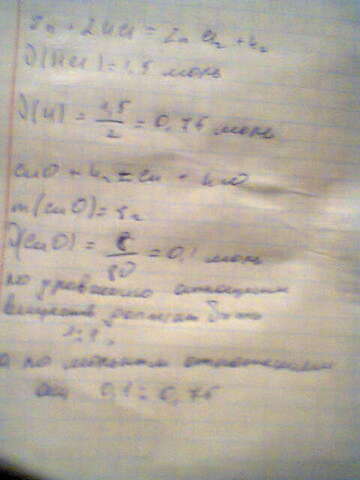 Zn + 2HCl = ZnCl2 + H2
ν(HCl) = 1,5 моль
ν(H) = 1,5/2 = 0,75 моль
CuO + H2 = Cu + H2O
m(CuO) = 8г
ν(CuO) = 8/80 = 0,1 моль
по уравнению отношения
веществ должны быть
1:1
а по
0,1 = 0,75